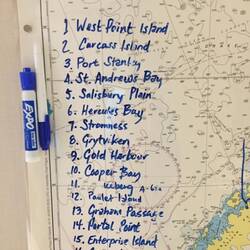 1 West Point Island
2 Carcass Island
3. Port Stanley
4. St. Andrews Bay
5. Salisbury Plain
6. Hercules Bay
7. Stromness
8. Grytviken
9. Gold Harbour
10. Cooper Bay
11. Iceberg
12. Paulet Island
13. Graham Passage
14. Portal Point
15. Enterprise Island
EXPO